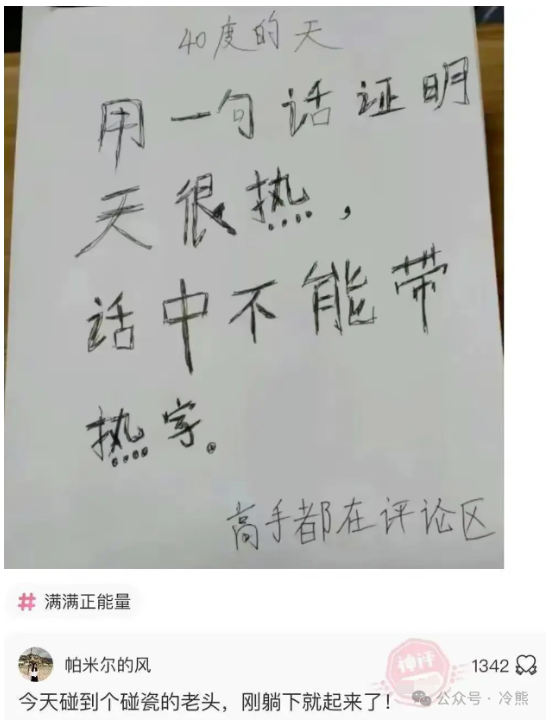 40度的天
用一句话证明
天很热，
话中不能带
热字。
高手都在评论区
# 满满正能量
帕米尔的风
神评
1342
今天碰到个碰瓷的老头，刚躺下就起来了！
公众号·冷熊